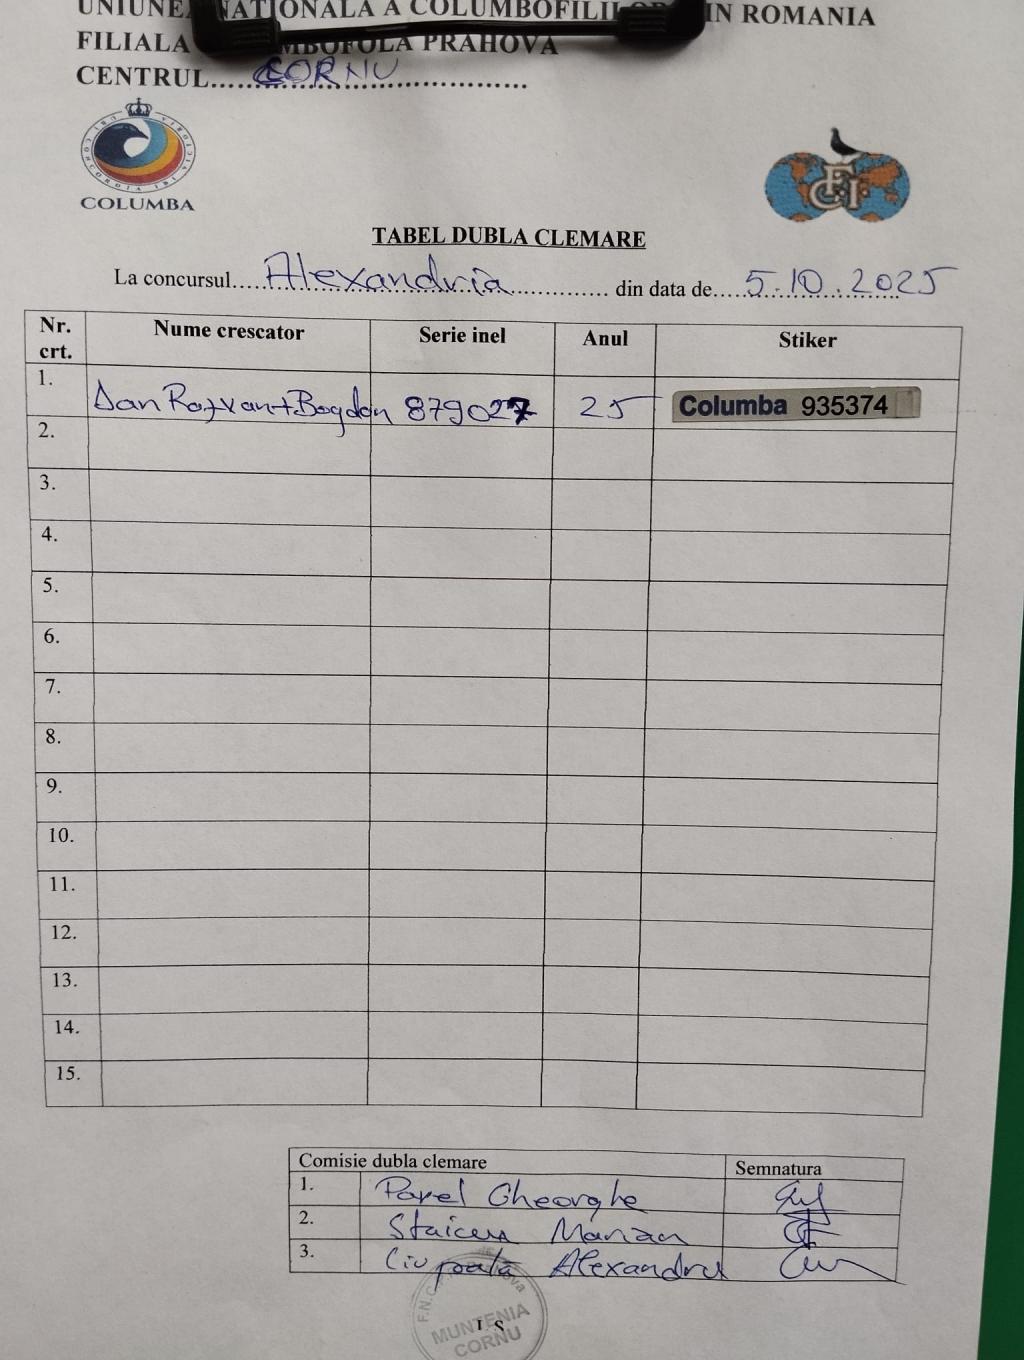 UNIUNEA NATIONALA A COLUMBOFILILOR IN ROMANIA
FILIALA COLUMBOFOLA PRAHOVA
CENTRUL.....CORNU.....
COLUMBA
FCI
TABEL DUBLA CLEMARE
La concursul.....Alexandria..... din data de.....5.10.2025
Nr. crt. Nume crescator Serie inel Anul Stiker
1. Dan Razvan+Bogdan 879027 25 Columba 935374
2.
3.
4.
5.
6.
7.
8.
9.
10.
11.
12.
13.
14.
15.
Comisie dubla clemare Semnatura
1. Pavel Gheorghe
2. Staicu Marian
3. Alexandru
L S
MUNTENIA
CORNU